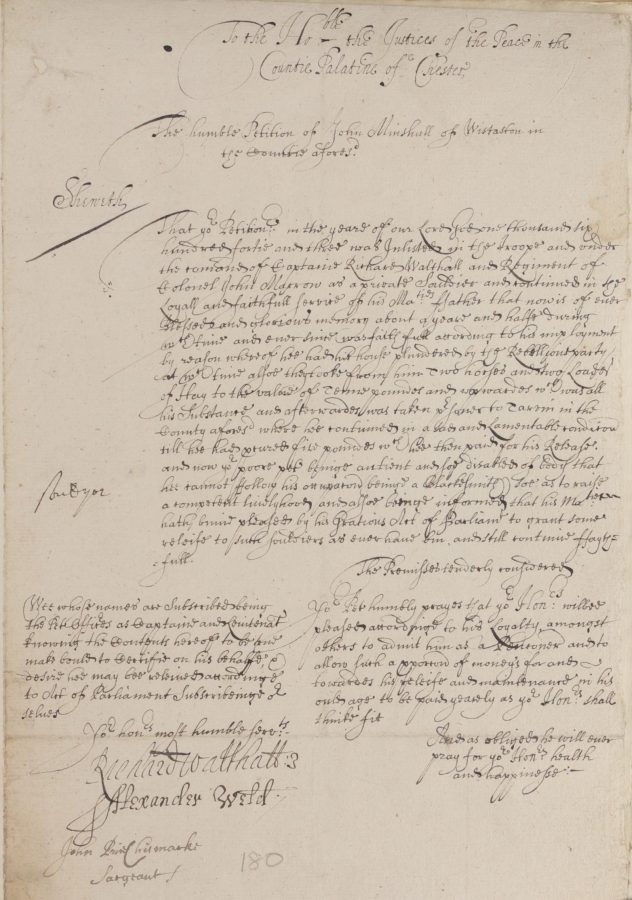 To the Ho:ble the Justices of the Peace in the
Countie Palatine of Chester
The humble Petition of John Minshull of Wistaston in
the Countie afores:d
Sheweth
That yo:r Petition:r in the yeare of our Lord God one thousand six
hundred fortie and three was Inlisted in the Troope and under
the comand of Captaine Richard Walthall and Regiment of
Colonel John Marrow as a private Souldier and continued in the
Loyall and faithfull service of his Ma:ties ffather that now is of ever
Blessed and glorious memory about a yeare and halfe during
w:ch time and ever since was faithfull according to his imployment
by reason whereof hee had his house plundered by the Rebellious party
at w:ch time alsoe they tooke from him Two horses and two Loades
of Hay to the value of Tenne poundes and upwardes w:ch was all
his Substance and afterwardes was taken p:soner to Tarvin in the
County afores:d where hee continued in a bad and Lamentable condicon
till hee had p:cured five poundes w:ch hee then paid for his Release.
and now yo:r poore pet:r beinge antient and soe disabled of body that
hee cannot ffollow his occupacon beinge a Blacksmith Soe as to raise
a competent livelyhood and alsoe beinge informed that his Ma:tie
hath binne pleased by his Gratious Act of Parliam:t to grant some
releife to such Souldiers as ever have bin and still continue ffayth=
=full.
souldyer
The Premisses tenderly considered
Yo:r Pet:r humbly prayes that yo:r Hon:rs wilbee
pleased accordinge to his Loyalty, amongst
others to admit him as a Pencioner and to
allow such a porcon of moneys for and
towardes his releife and maintenance in his
ould age to be paid yearely as yo:r Hon:rs shall
thinke fit
And as obliged he will ever
pray for yo:r Hon:rs health
and happinesse:-
Wee whose names are Subscribed being
the Pet:rs Officers as Captaine and Lieutenat
knowing the Contents hereof to be true
make bould to Certifie on his behalfe &
desire hee may bee releived accordinge
to Act of Parliament Subscribeinge o:r
selves
Yo:r hon:rs most humble serv:ts
Richard Walthall:
Alexander Weld
John his marke
Sargeant
180